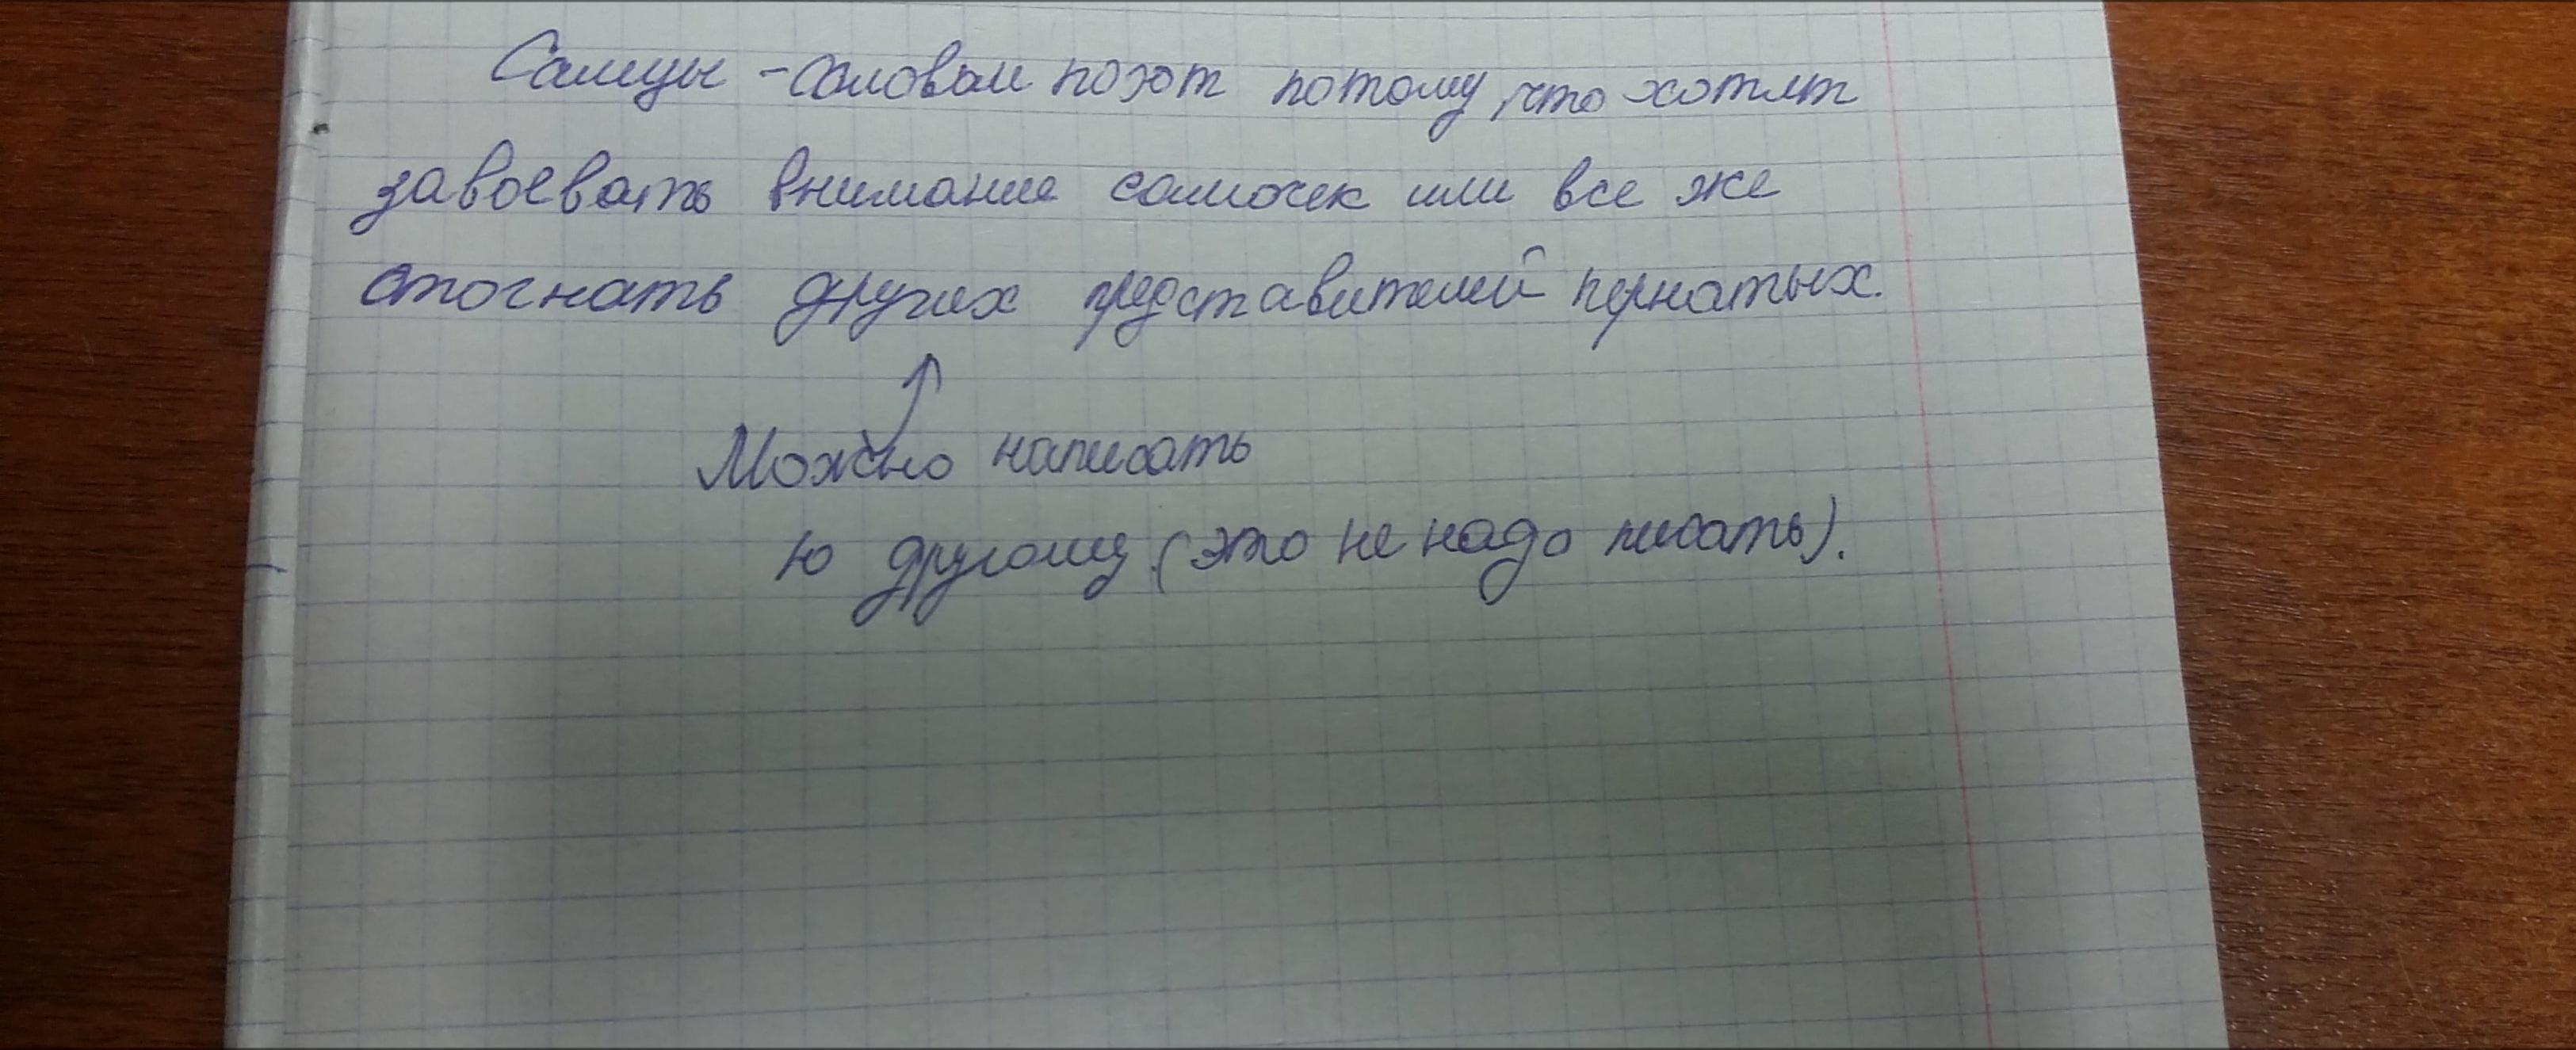 Самцы - соловьи поют потому, что хотят
завоевать внимание самочек или все же
отогнать других представителей пернатых.
Можно написать
по другому (это не надо писать).